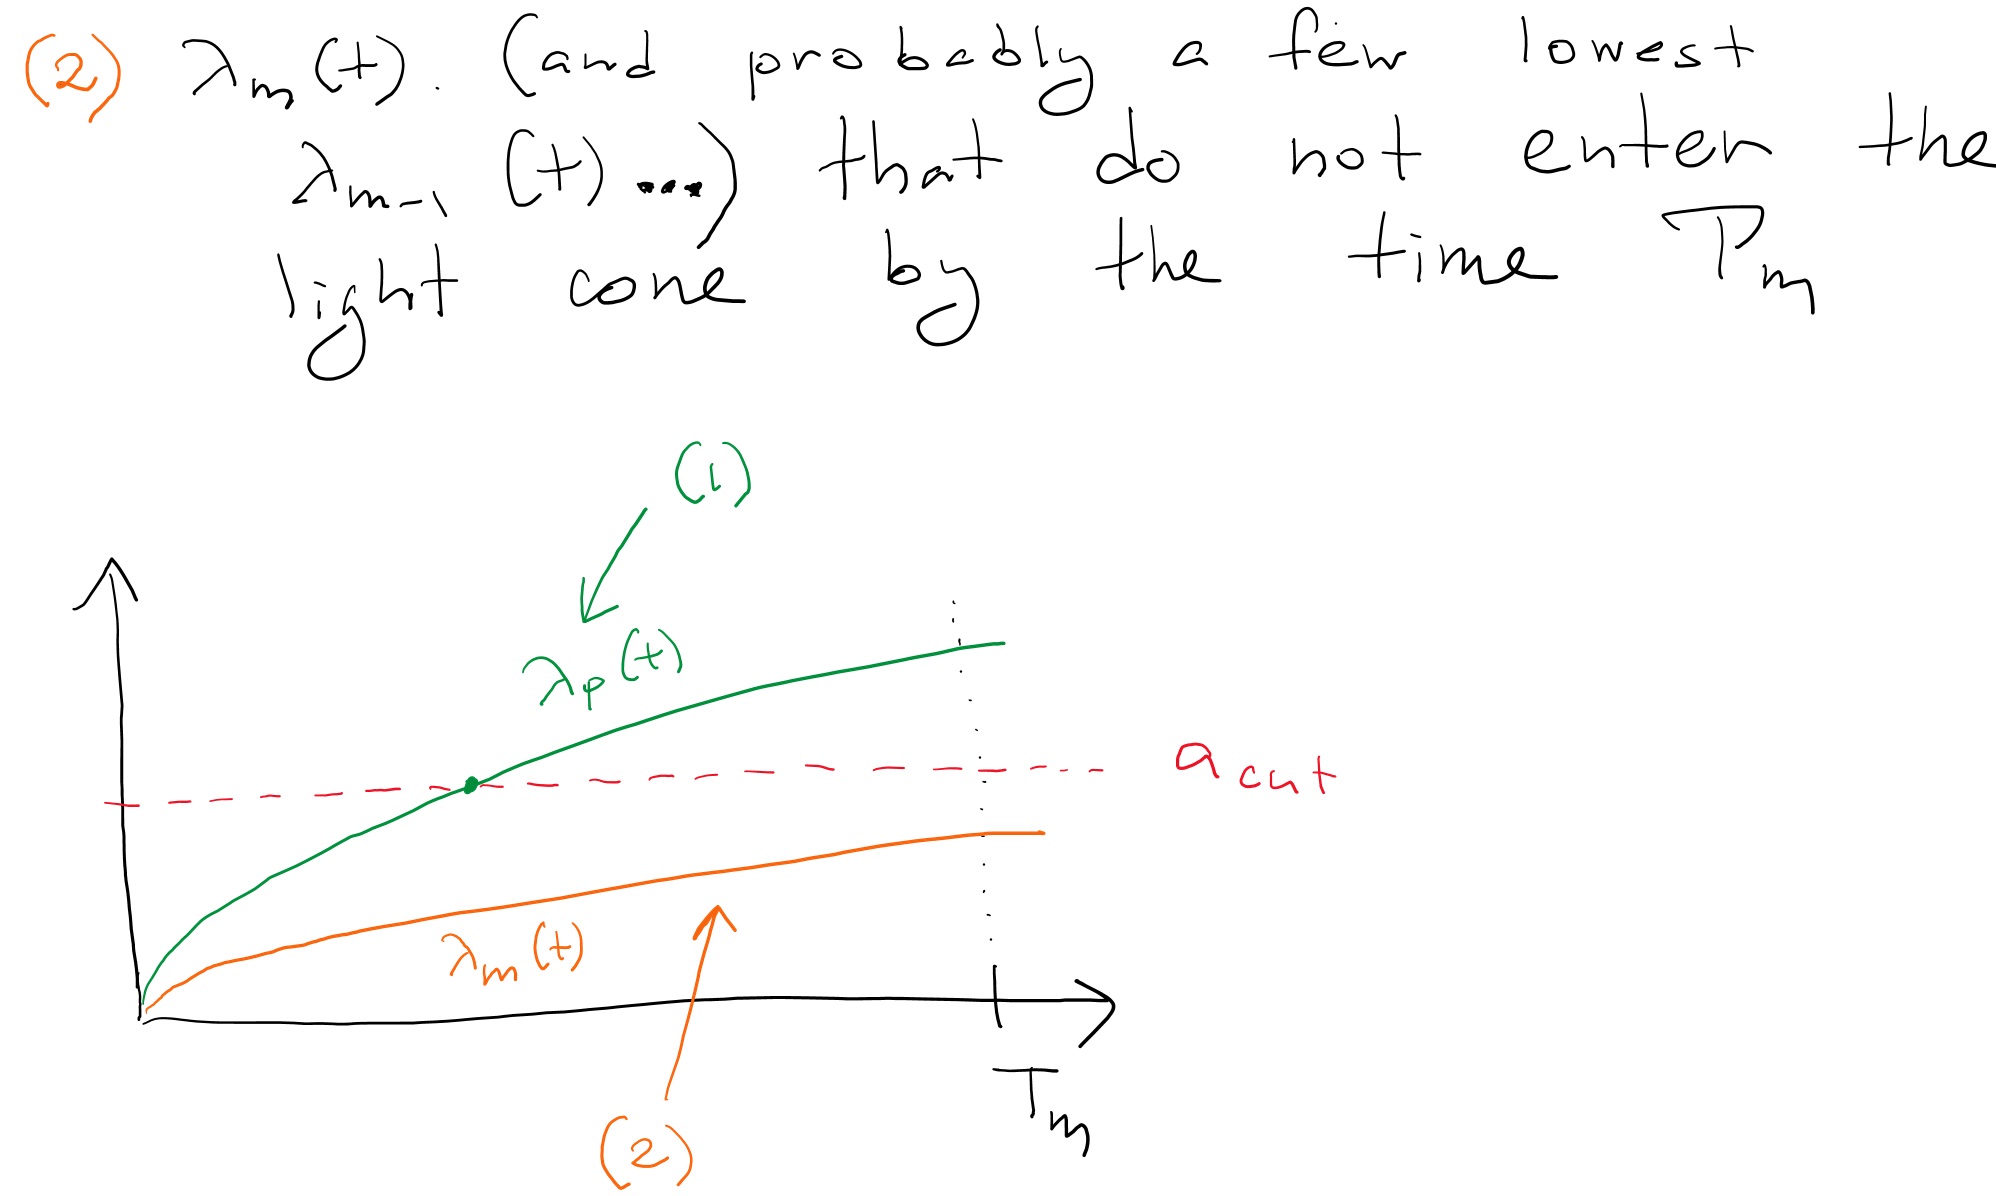 (2) λₘ(t). (and probably a few lowest
λₘ₋₁ (t) ...) that do not enter the
light cone by the time Tₘ
(1)
λₚ(t)
a cut
λₘ(t)
Tₘ
(2)